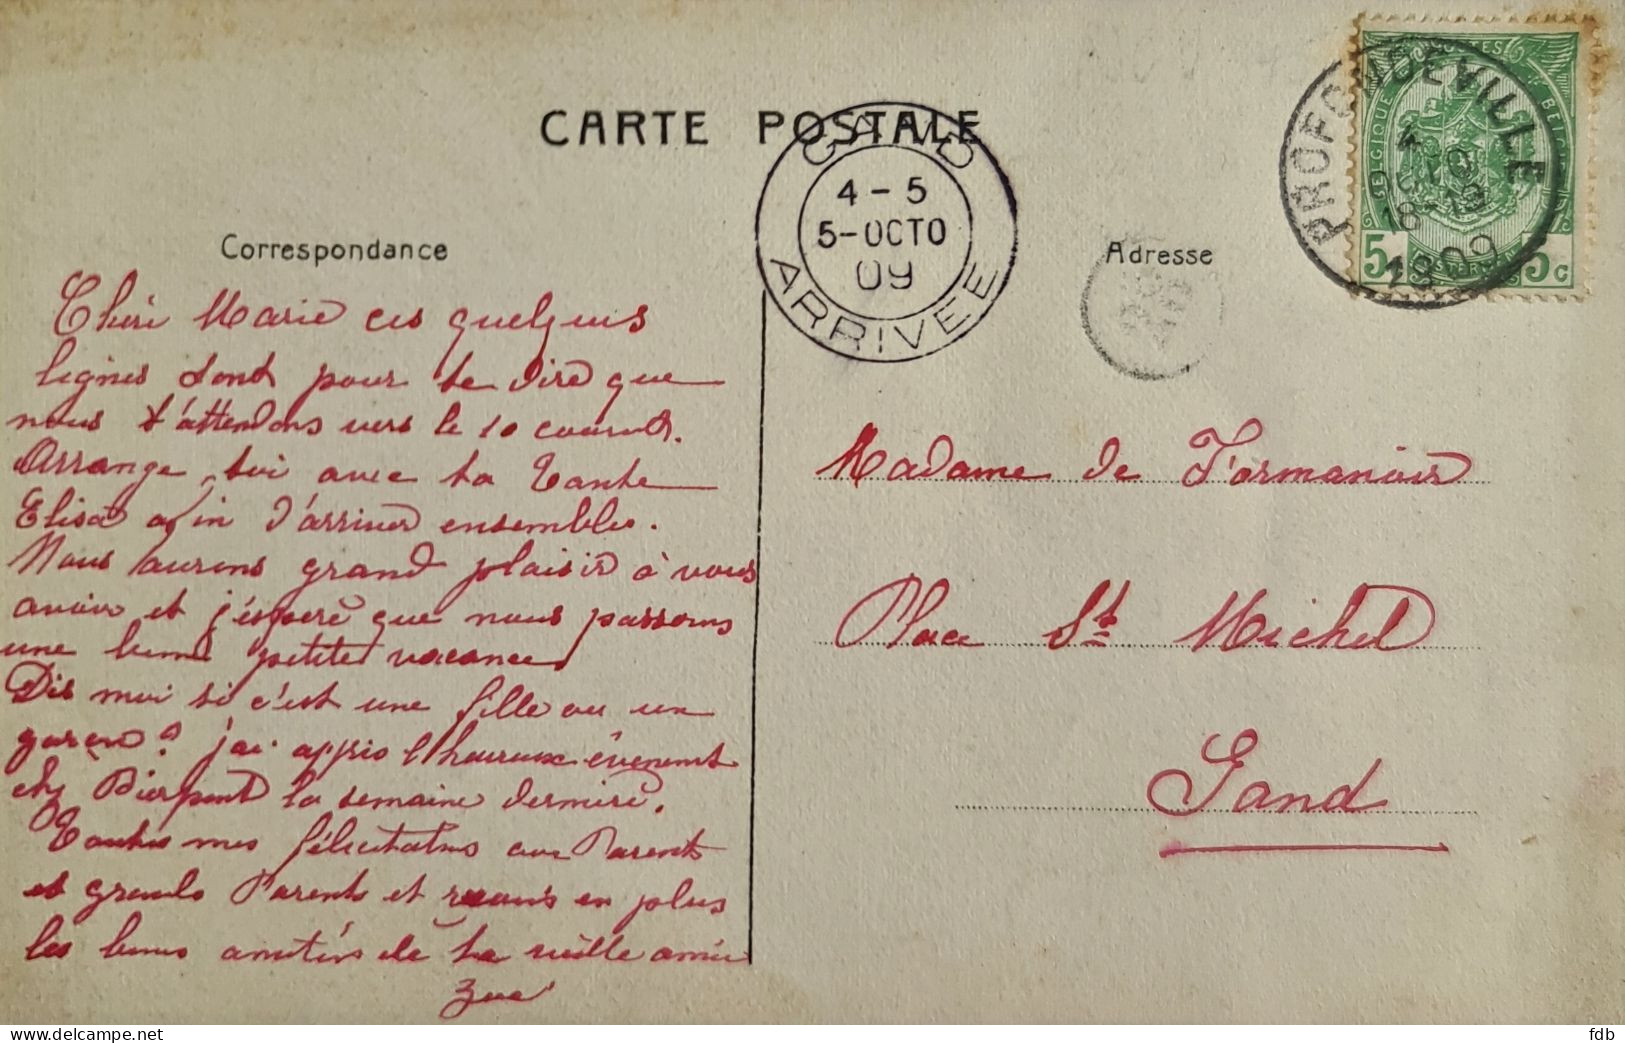 CARTE POSTALE
Correspondance
Adresse
GAND
4-5
5-OCTO
09
ARRIVEE
PROFONDEVILLE
4
OCTO
18-19
1909
BELGIQUE
POSTES
BELGIË
5 5 c
Chère Marie ces quelques
lignes dont pour te dire que
nous t'attendons vers le 10 courant.
Arrange toi avec ta Tante
Elisa afin d'arriver ensembles.
Nous aurons grand plaisir à vous
avoir et j'espère que nous passerons
une bonne petite vacance
Dis moi si c'est une fille ou un
garçon? j'ai appris l'heureux évènement
chez Pierpont la semaine dernière.
Toutes mes félicitations aux Parents
et grands Parents et reçois en plus
les bonnes amitiés de ta vieille amie
Zoé
Madame de Formanoir
Place St Michel
Gand
delcampe.net
fdb